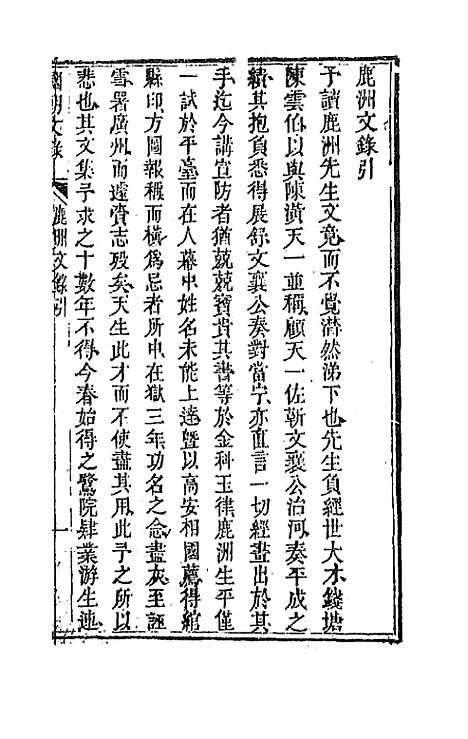 鹿洲文錄引
予讀鹿洲先生文竟而不覺潸然涕下也先生負經世大才錢塘
陳雲伯以與陳潢天一並稱顧天一佐靳文襄公治河奏平成之
績其抱負悉得展舒文襄公奏對當宁亦直言一切經畫出於其
手迄今講宣防者猶兢兢寶貴其書等於金科玉律鹿洲生平僅
一試於平臺而在人幕中姓名未能上達暨以高安相國薦得綰
縣印方圖報稱而橫為忌者所中在獄三年功名之念盡灰至誣
雪署廣州而遽賫志歿矣天生此才而不使盡其用此予之所以
悲也其文集予求之十數年不得今春始得之鷺院肄業游生連
國朝文錄
鹿洲文錄引
一